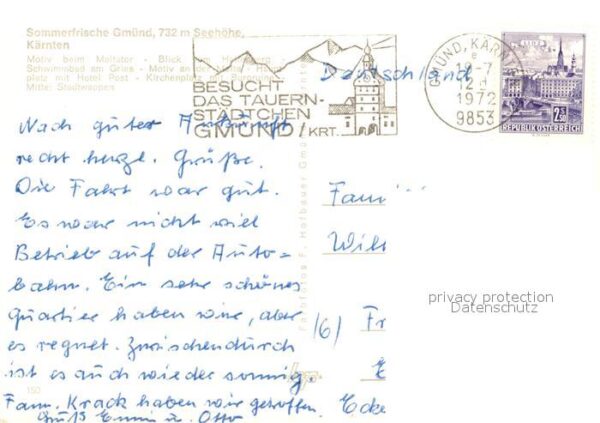 Sommerfrische Gmünd, 732 m Seehöhe,
Kärnten
Motiv beim Maltator - Blick zum
Schwimmbad am Gries - Motiv an
platz mit Hotel Post - Kirchenplatz
Mitte: Stadtwappen
BESUCHT
DAS TAUERN-
STÄDTCHEN
GMÜND/KRT.
GMÜND, KÄRNT
19.-7
1972
9853
LINZ
2.50
REPUBLIK ÖSTERREICH
Deutschland
Nach guter Ankunft
recht herzl. Grüße.
Die Fahrt war gut.
Es war nicht viel
Betrieb auf der Auto=
bahn. Ein sehr schönes
Quartier haben wir, aber
es regnet. Zwischendurch
ist es auch wieder sonnig.
Fam. Krack haben wir getroffen.
Gruß Emmi u. Otto
150
Fam
Wilh
(6) Fr
E
Ecke
Farbfotos F. Hofbauer Gmünd
privacy protection
Datenschutz